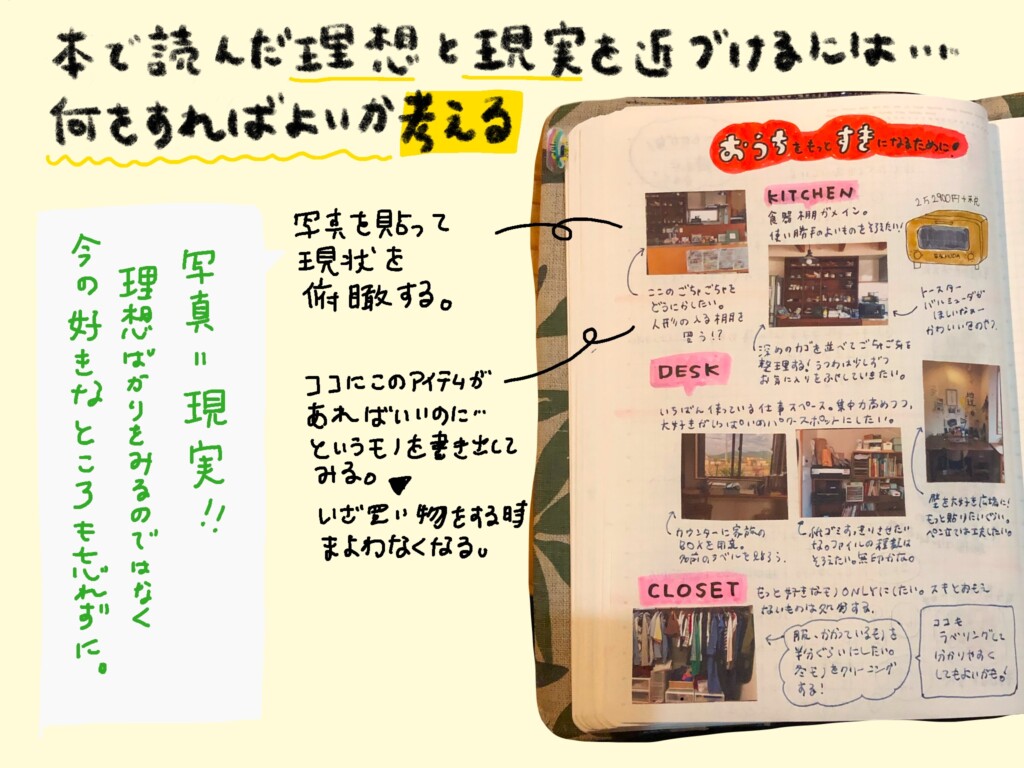 本で読んだ理想と現実を近づけるには…
何をすればよいか考える
写真を貼って
現状を
俯瞰する。
ココにこのアイテムが
あればいいのに…
というモノを書き出して
みる。
いざ買い物をする時
まよわなくなる。
写真=現実!!
理想ばかりをみるのではなく
今の好きなところも忘れずに。
おうちをもっとすきになるために!
KITCHEN
食器棚がメイン。
使い勝手のよいものをそろえたい!
2万2900円+税
ここのごちゃごちゃを
どうにかしたい。
人形の入る棚を
買う!?
トースター
バルミューダが
ほしいなぁー
かわいい
深めのカゴを並べてごちゃごちゃを
整理する!うつわは少しずつ
お気に入りをふやしていきたい。
DESK
いちばん使っている仕事スペース。集中力高めつつ、
大好きがいっぱいのパワースポットにしたい。
カウンターに家族の
BOXを用意。
名前のラベルを貼ろう。
紙ゴミすっきりさせたい
な。ファイルの種類は
そろえたい。無印かな。
壁を大好き広場に!
もっと貼りたいぐらい。
ペン立ては工夫したい。
CLOSET
もっと好きなモノONLYにしたい。スキとおもえ
ないものは処分する。
服、かかっているモノを
半分ぐらいにしたい。
冬モノをクリーニング
する!
ココも
ラベリングして
分かりやすく
してもよいかも!